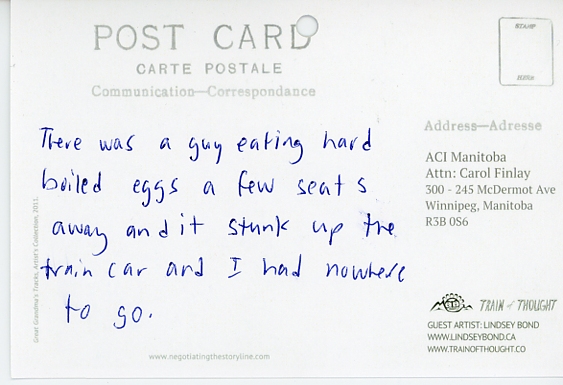 POST CARD
CARTE POSTALE
Communication—Correspondance
STAMP
HERE
There was a guy eating hard
boiled eggs a few seats
away and it stunk up the
train car and I had nowhere
to go.
Address—Adresse
ACI Manitoba
Attn: Carol Finlay
300 - 245 McDermot Ave
Winnipeg, Manitoba
R3B 0S6
TRAIN of THOUGHT
GUEST ARTIST: LINDSEY BOND
WWW.LINDSEYBOND.CA
WWW.TRAINOFTHOUGHT.CO
Great Grandma's Tracks, Artist's Collection, 2011.
www.negotiatingthestoryline.com